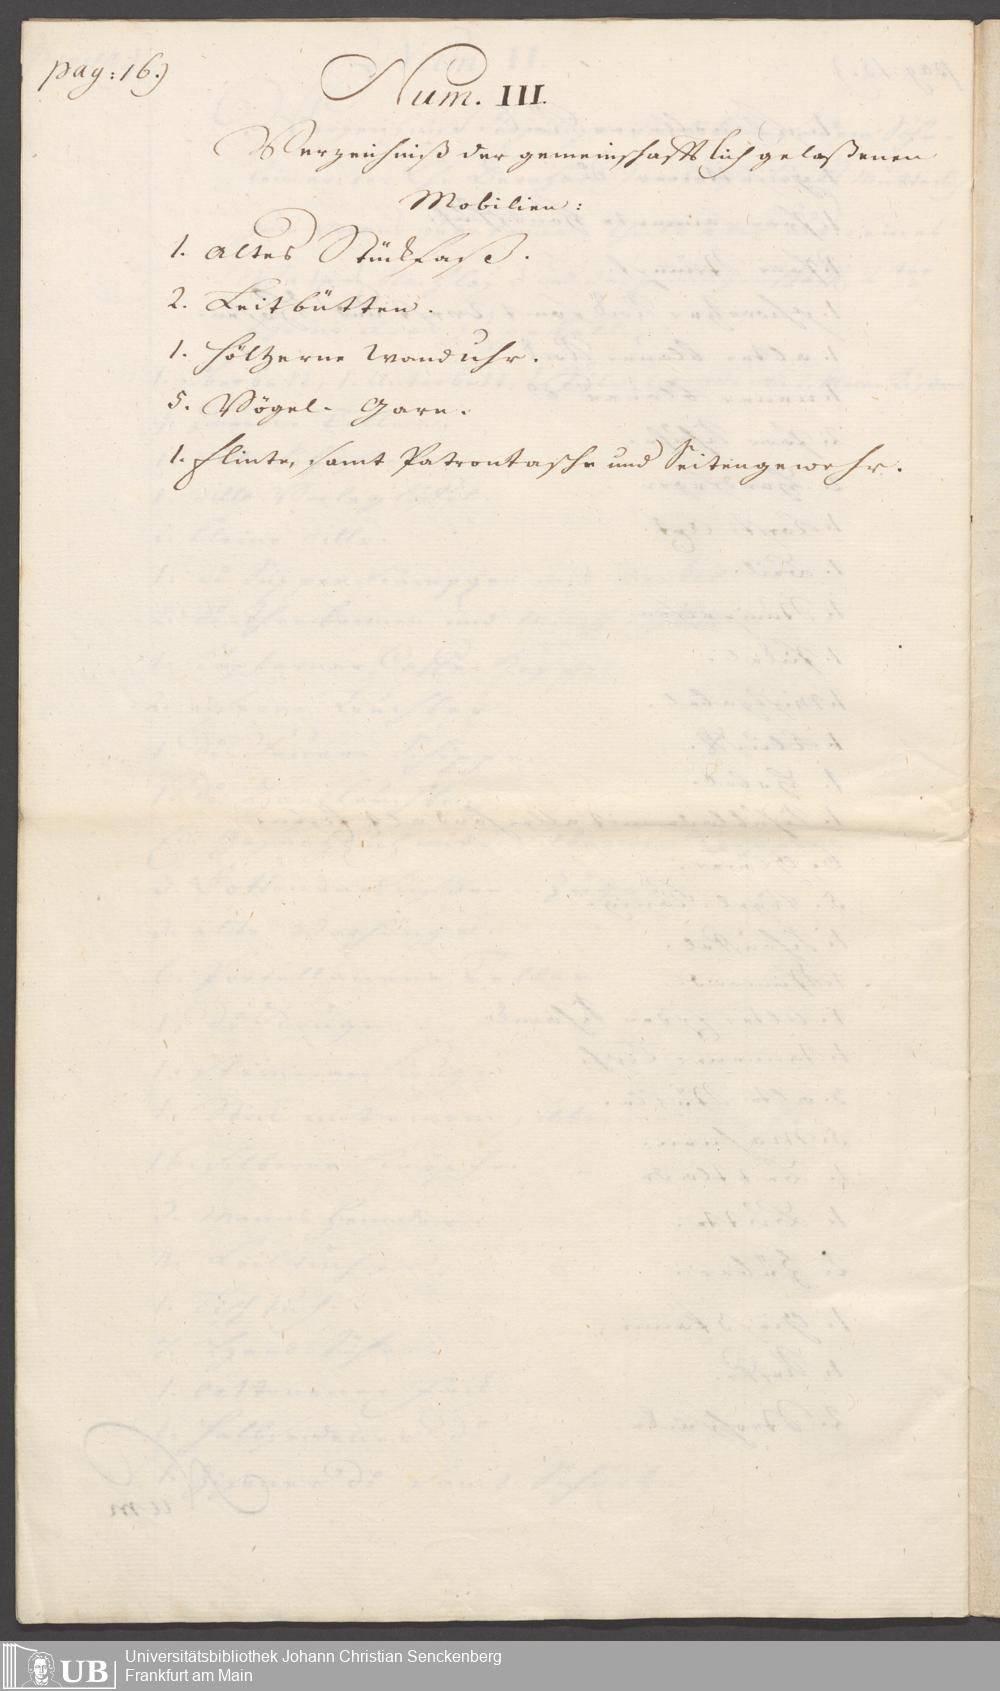 pag: 16.)
Num. III.
Verzeichniß der gemeinschafftlich gelaßenen
Mobilien:
1. altes Stückfaß.
2. Leitbütten.
1. höltzerne Wanduhr.
5. Vögel-Garn.
1. Flinte, samt Patrontasche und Seitengewehr.
UB
Universitätsbibliothek Johann Christian Senckenberg
Frankfurt am Main